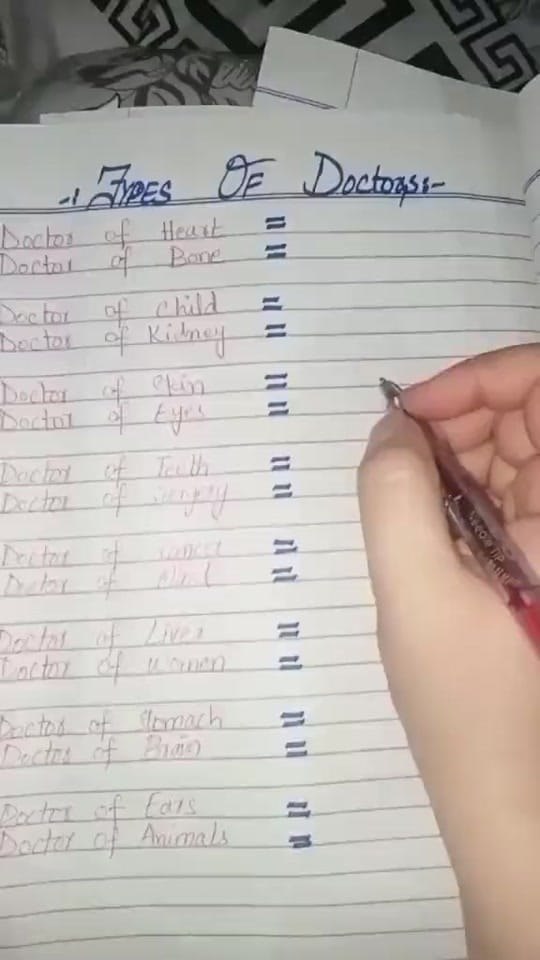 -: TYPES OF Doctors:-
Doctor of Heart =
Doctor of Bone =
Doctor of Child =
Doctor of Kidney =
Doctor of Skin =
Doctor of Eyes =
Doctor of Teeth =
Doctor of Surgery =
Doctor of Cancer =
Doctor of =
Doctor of Liver =
Doctor of Women =
Doctor of Stomach =
Doctor of Brain =
Doctor of Ears =
Doctor of Animals =